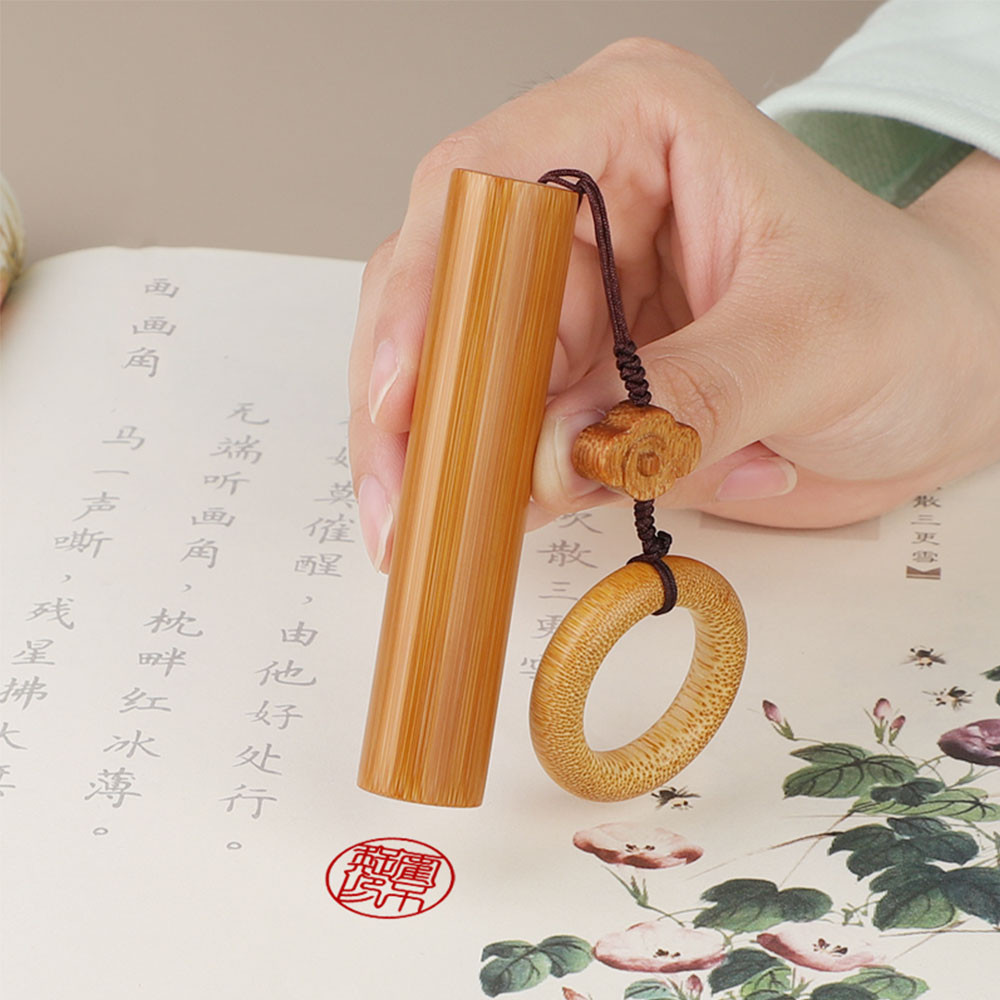 散三更雪
散三更
莫催醒，由他好处行。
无端听画角，枕畔红冰薄。
画画角
马一声嘶，残星拂大